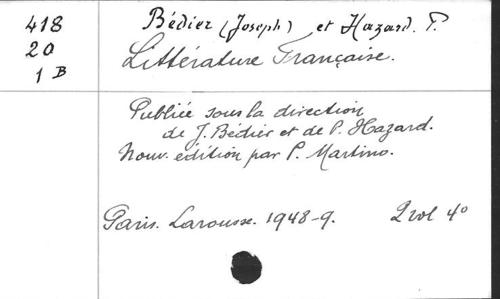 418
20
1 B
Bédier (Joseph) et Hazard. P.
Littérature Française.
Publiée sous la direction
de J. Bédier et de P. Hazard.
Nouv. édition par P. Martino.
Paris. Larousse. 1948-9. 2 vol 4°